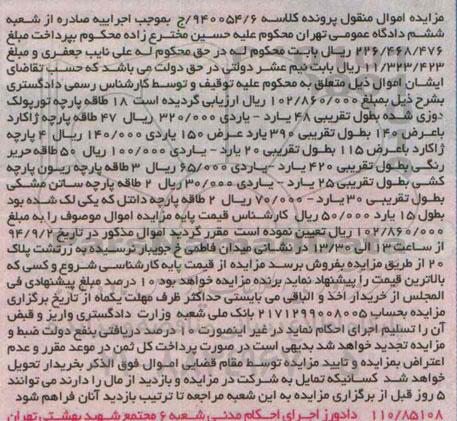 مزایده اموال منقول پرونده کلاسه ۹۴۰۰۵۴/۶/ج بموجب اجراییه صادره از شعبه
ششم دادگاه عمومی تهران محکوم علیه حسین مخترع زاده محکوم بپرداخت مبلغ
۲۲۶/۴۶۸/۴۷۶ ریال بابت محکوم له در حق محکوم له علی نایب جعفری و مبلغ
۱۱/۳۲۳/۴۲۳ ریال بابت نیم عشر دولتی در حق دولت می باشد که حسب تقاضای
ایشان اموال ذیل متعلق به محکوم علیه توقیف و توسط کارشناس رسمی دادگستری
بشرح ذیل بمبلغ ۱۰۲/۸۶۰/۰۰۰ ریال ارزیابی گردیده است ۱۸ طاقه پارچه تورپولک
دوزی شده بطول تقریبی ۴۸ یارد - یاردی ۳۲۰/۰۰۰ ریال ۴۷ طاقه پارچه ژاکارد
باعرض ۱۴۰ بطول تقریبی ۳۹۰ یارد عرض ۱۵۰ یاردی ۱۴۰/۰۰۰ ریال ۴ پارچه
ژاکارد باعرض ۱۱۵ بطول تقریبی ۲۰ یارد - یاردی ۱۰۰/۰۰۰ ریال ۵۰ طاقه حریر
رنگی بطول تقریبی ۴۲۰ یارد - یاردی ۶۵/۰۰۰ ریال ۳ طاقه پارچه ریون پارچه
کشی بطول تقریبی ۲۵ یارد - یاردی ۳۰/۰۰۰ ریال ۲ طاقه پارچه ساتن مشکی
بطول تقریبی ۳۰ یارد - ۷۰/۰۰۰ ریال ۲ طاقه پارچه دانتل که یکی لک شده بود
بطول ۱۵ یارد ۵۰/۰۰۰ ریال کارشناس قیمت پایه مزایده اموال موصوف را به مبلغ
۱۰۲/۸۶۰/۰۰۰ ریال تعیین نموده است مقرر گردید اموال مذکور در تاریخ ۹۴/۹/۲
از ساعت ۱۳ الی ۱۳/۳۰ در نشانی میدان فاطمی خ جویبار نرسیده به زرتشت پلاک
۲۰ از طریق مزایده بفروش برسد مزایده از قیمت پایه کارشناسی شروع و کسی که
بالاترین قیمت را پیشنهاد نماید برنده مزایده خواهد بود ۱۰ درصد مبلغ پیشنهادی فی
المجلس از خریدار اخذ و الباقی می بایستی حداکثر ظرف مهلت یکماه از تاریخ برگزاری
مزایده بحساب ۲۱۷۱۲۹۹۰۰۸۰۰۵ بانک ملی شعبه وزارت دادگستری واریز و قبض
آن را تسلیم اجرای احکام نماید در غیر اینصورت ۱۰ درصد دریافتی بنفع دولت ضبط و
مزایده تجدید خواهد شد بدیهی است در صورت پرداخت کل ثمن در موعد مقرر و عدم
اعتراض بمزایده و تایید مزایده توسط مقام قضایی اموال فوق الذکر بخریدار تحویل
خواهد شد کسانیکه تمایل به شرکت در مزایده و بازدید از مال را دارند می توانند
۵ روز قبل از برگزاری مزایده به این شعبه مراجعه تا ترتیب بازدید آنان فراهم شود
۱۱۰/۸۵۱۰۸ دادورز اجرای احکام مدنی شعبه ۶ مجتمع شهید بهشتی تهران